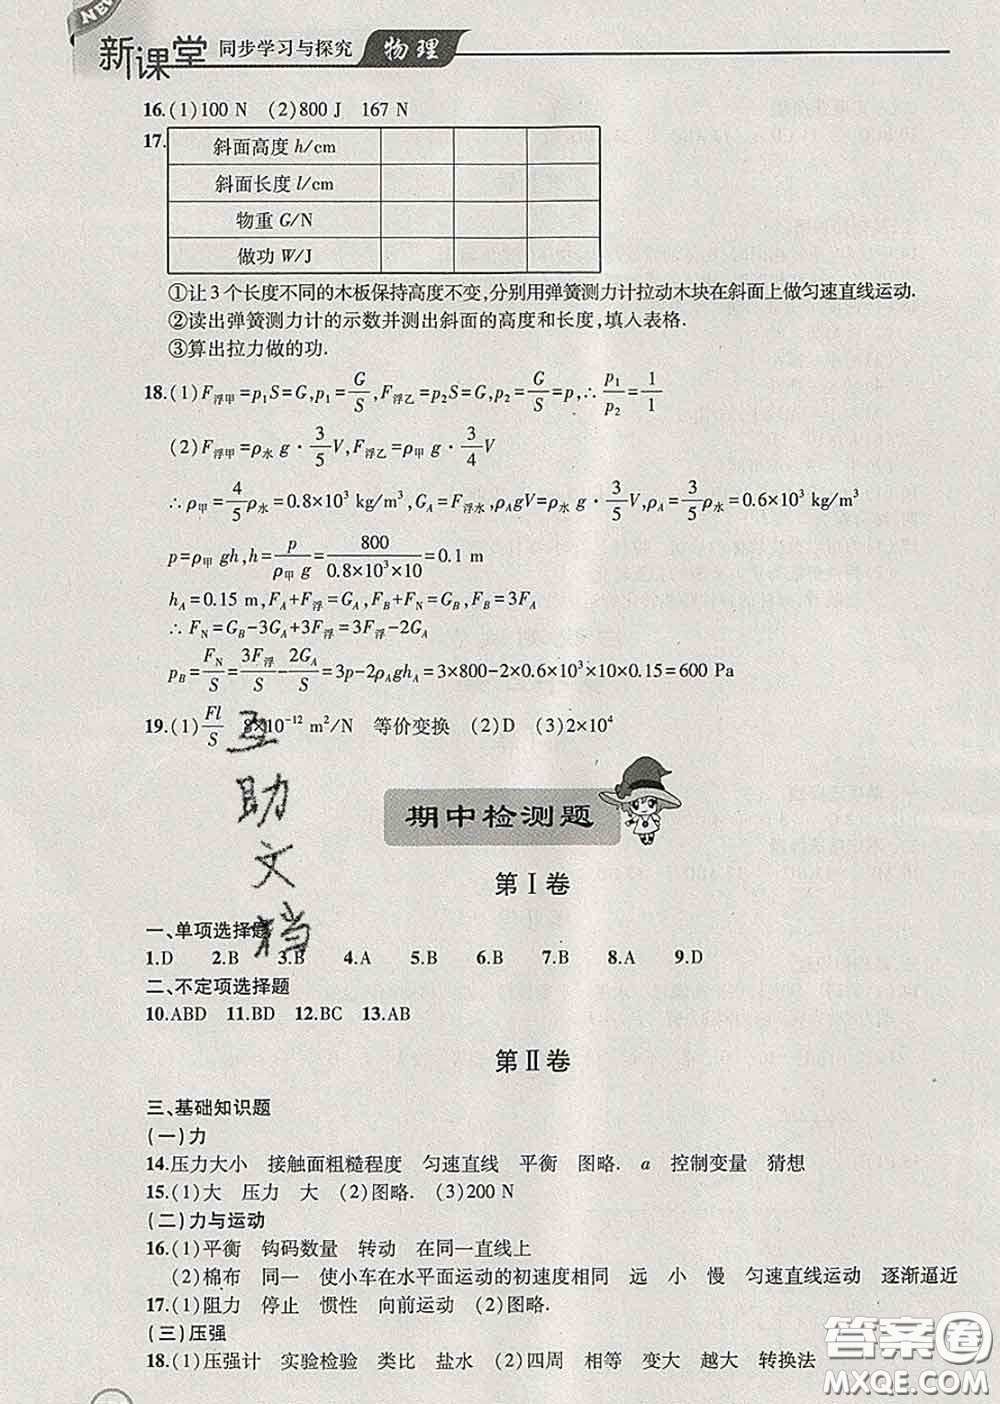 NEW
新课堂 同步学习与探究 物理
16.(1)100 N (2)800 J 167 N
17.
斜面高度 h/cm
斜面长度 l/cm
物重 G/N
做功 W/J
①让3个长度不同的木板保持高度不变,分别用弹簧测力计拉动木块在斜面上做匀速直线运动.
②读出弹簧测力计的示数并测出斜面的高度和长度,填入表格.
③算出拉力做的功.
18.(1)F浮甲=p₁S=G,p₁=G/S,F浮乙=p₂S=G,p₂=G/S=p,∴p₁/p₂=1/1
(2)F浮甲=ρ水 g·3/5V,F浮乙=ρ甲 g·3/4V
∴ρ甲=4/5ρ水=0.8×10³ kg/m³,G_A=F浮水,ρ_AgV=ρ水 g·3/5V,ρ_A=3/5ρ水=0.6×10³ kg/m³
p=ρ甲 gh,h=p/(ρ甲 g)=800/(0.8×10³×10)=0.1 m
h_A=0.15 m,F_A+F浮=G_A,F_B+F_N=G_B,F_B=3F_A
∴F_N=G_B-3G_A+3F浮=3F浮-2G_A
p_B=F_N/S=3F浮/S-2G_A/S=3p-2ρ_Agh_A=3×800-2×0.6×10³×10×0.15=600 Pa
19.(1)Fl/S 8×10⁻¹² m²/N 等价变换 (2)D (3)2×10⁴
互助文档
期中检测题
第Ⅰ卷
一、单项选择题
1.D 2.B 3.B 4.A 5.B 6.B 7.B 8.A 9.D
二、不定项选择题
10.ABD 11.BD 12.BC 13.AB
第Ⅱ卷
三、基础知识题
(一)力
14.压力大小 接触面粗糙程度 匀速直线 平衡 图略. a 控制变量 猜想
15.(1)大 压力 大 (2)图略. (3)200 N
(二)力与运动
16.(1)平衡 钩码数量 转动 在同一直线上
(2)棉布 同一 使小车在水平面运动的初速度相同 远 小 慢 匀速直线运动 逐渐逼近
17.(1)阻力 停止 惯性 向前运动 (2)图略.
(三)压强
18.(1)压强计 实验检验 类比 盐水 (2)四周 相等 变大 越大 转换法
答案圈
MXQE.COM